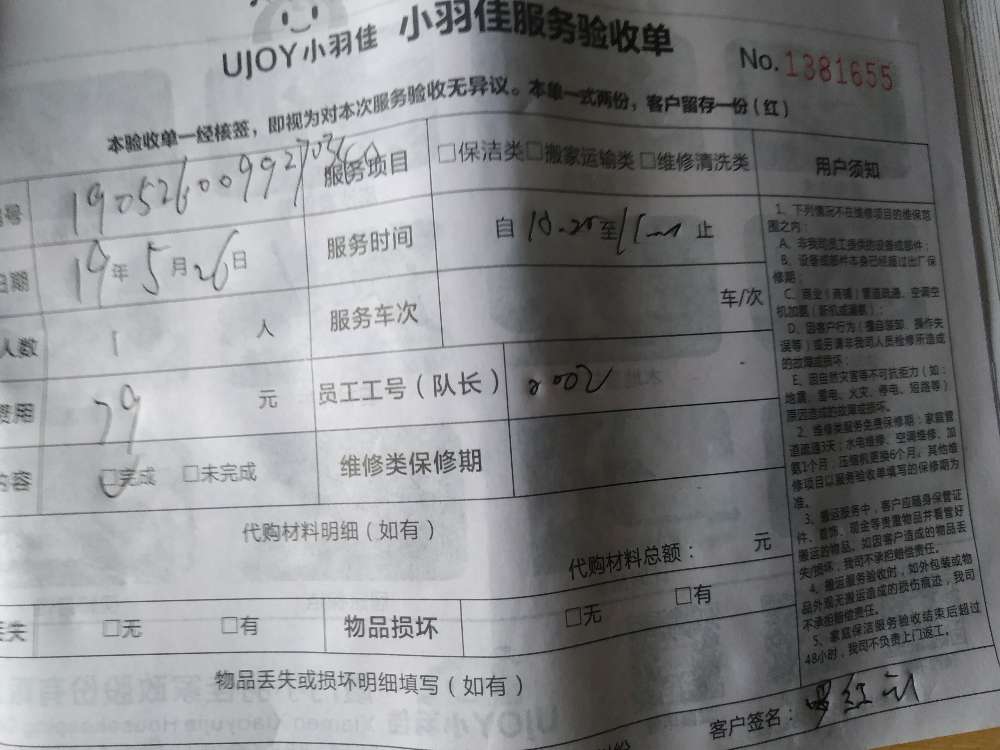 UJOY小羽佳 小羽佳服务验收单
No. 1381655
本验收单一经核签，即视为对本次服务验收无异议。本单一式两份，客户留存一份（红）
号 服务项目 □保洁类□搬家运输类 □维修清洗类 用户须知
日期 19年5月26日 服务时间 自 至 止
人数 1 人 服务车次 车/次
费用 79 元 员工工号（队长）
内容 □完成 □未完成 维修类保修期
代购材料明细（如有）
代购材料总额： 元
丢失 □无 □有 物品损坏 □无 □有
物品丢失或损坏明细填写（如有）
1、下列情况不在维修项目的维保范
围之内：
A、非我司员工提供的设备或部件；
B、设备或部件本身已经超过出厂保
修期；
C、商业（商铺）管道疏通、空调空
机加氨（新机或漏氨）；
D、因客户行为（擅自装卸、操作失
误等）或另请非我司人员检修所造成
的故障或损坏；
E、因自然灾害等不可抗拒力（如：
地震、雷电、火灾、停电、短路等）
原因造成的故障或损坏。
2、维修类服务免费保修期：家庭管
道疏通3天；水电维修、空调维修、加
氨1个月，压缩机更换6个月。其他维
修项目以服务验收单填写的保修期为
准。
3、搬运服务中，客户应随身保管证
件、首饰、现金等贵重物品并看管好
搬运的物品。如因客户造成的物品丢
失/损坏，我司不承担赔偿责任。
4、搬运服务验收时，如外包装或物
品外观无搬运造成的损伤痕迹，我司
不承担赔偿责任。
5、家庭保洁服务验收结束后超过
48小时，我司不负责上门返工。
客户签名：